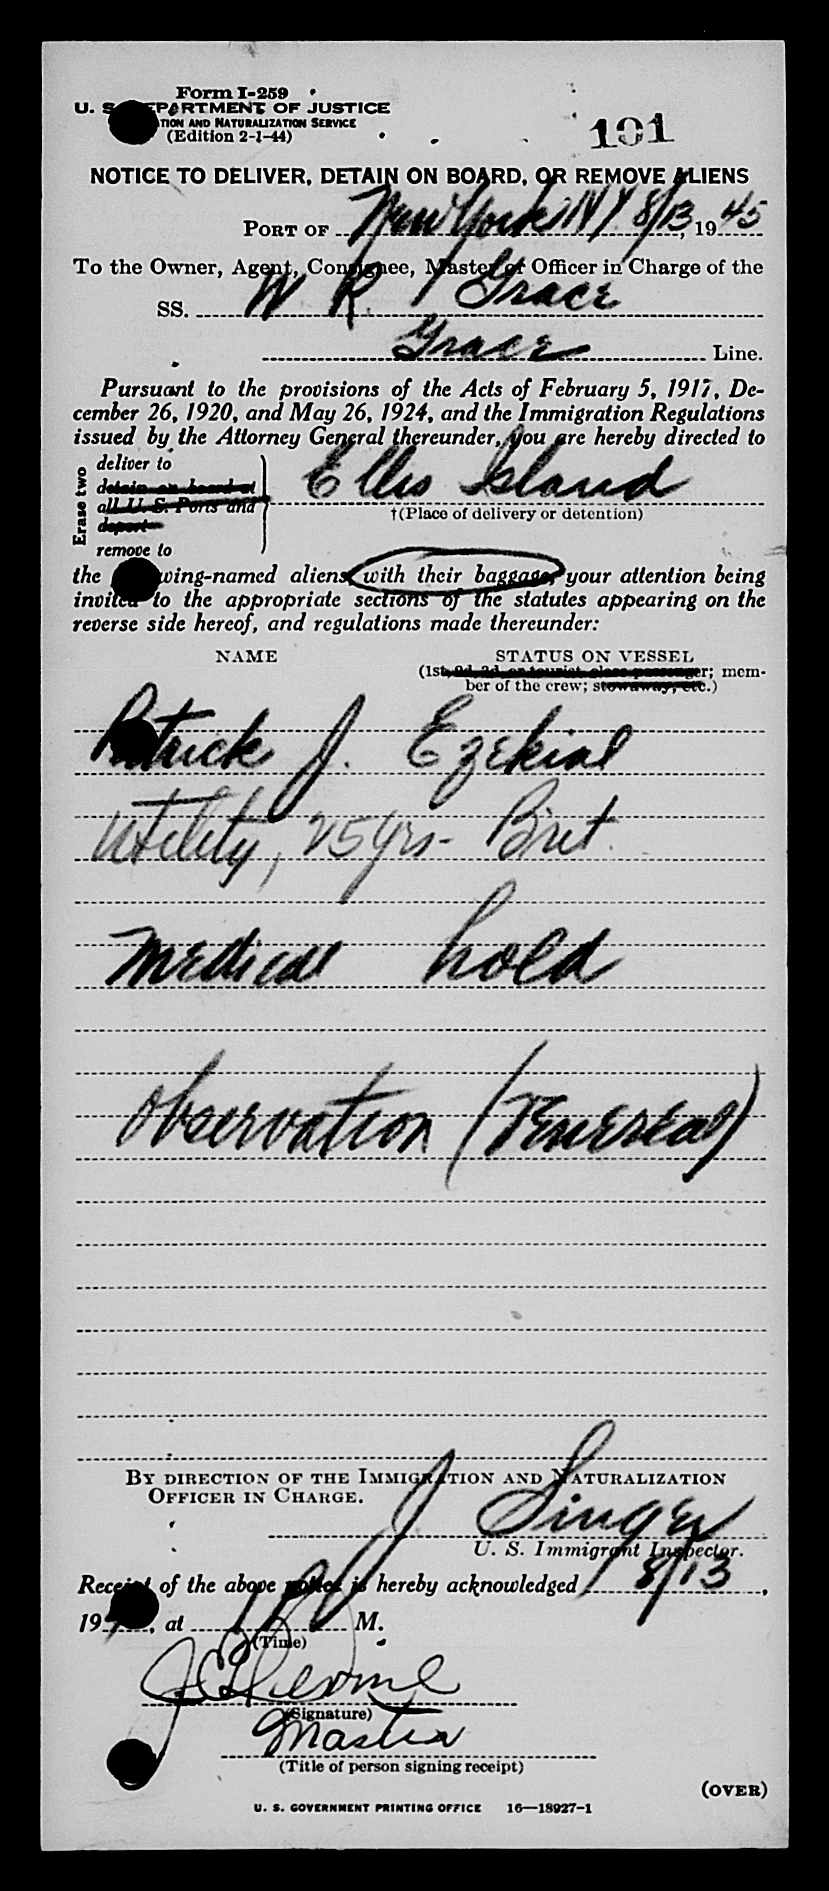 Form I-259
U. S. DEPARTMENT OF JUSTICE
TION AND NATURALIZATION SERVICE
(Edition 2-1-44)
191
NOTICE TO DELIVER, DETAIN ON BOARD, OR REMOVE ALIENS
PORT OF New York NY 8/13, 1945
To the Owner, Agent, Consignee, Master or Officer in Charge of the
SS. W R Grace
Grace Line.
Pursuant to the provisions of the Acts of February 5, 1917, De-
cember 26, 1920, and May 26, 1924, and the Immigration Regulations
issued by the Attorney General thereunder, you are hereby directed to
Erase two
deliver to
detain on board at
all U. S. Ports and
deport
remove to
Ellis Island
†(Place of delivery or detention)
the wing-named aliens, with their baggage, your attention being
invited to the appropriate sections of the statutes appearing on the
reverse side hereof, and regulations made thereunder:
NAME STATUS ON VESSEL
(1st, 2d, 3d, or tourist class passenger; mem-
ber of the crew; stowaway, etc.)
Patrick J. Ezekial
Utility, 25 yrs - Brit.
Medical hold
Observation (Venereal)
BY DIRECTION OF THE IMMIGRATION AND NATURALIZATION
OFFICER IN CHARGE.
J Singer
U. S. Immigrant Inspector.
Receipt of the above notice is hereby acknowledged 8/13,
19, at M.
(Time)
(Signature)
Master
(Title of person signing receipt)
(OVER)
U. S. GOVERNMENT PRINTING OFFICE 16—18927-1